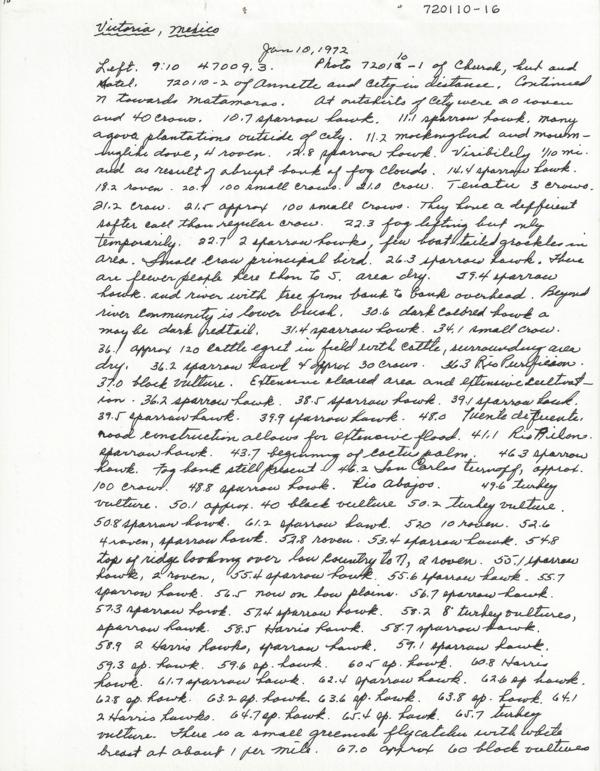 720110-16
Victoria, Mexico
Jan 10, 1972
Left. 9:10 47009.3. Photo 720110-1 of Church, hut and
Hotel. 720110-2 of Annette and City in distance. Continued
N towards Matamoras. At outskirts of City were 20 raven
and 40 crows. 10.7 sparrow hawk. 11.1 sparrow hawk. Many
agava plantations outside of city. 11.2 mockingbird and mourn-
inglike dove, 4 raven. 12.8 sparrow hawk. Visibility 1/10 mi.
and as result of abrupt bank of fog clouds. 14.4 sparrow hawk.
18.2 raven. 20.9 100 small crows. 21.0 crow. 3 crows.
21.2 crow. 21.5 approx 100 small crows. They have a different
softer call than regular crow. 22.3 fog lifting but only
temporarily. 22.7 2 sparrow hawks, few boat tailed grackles in
area. Small crow principal bird. 26.3 sparrow hawk. There
are fewer people here than to S. area dry. 29.4 sparrow
hawk. and river with tree from bank to bank overhead. Beyond
river community is lower brush. 30.6 dark colored hawk a
maybe dark redtail. 31.4 sparrow hawk. 34.1 small crow.
36. approx 120 cattle egret in field with cattle, surrounding area
dry. 36.2 sparrow hawk & approx 30 crows. 36.3 Rio Purificion.
37.0 black vulture. Extensive cleared area and extensive cultivat-
ion. 36.2 sparrow hawk. 38.5 sparrow hawk. 39.1 sparrow hawk.
39.5 sparrow hawk. 39.9 sparrow hawk. 48.0 Puente de
road construction allows for extensive flood. 41.1 Rio Pilone.
sparrow hawk. 43.7 beginning of cactus palm. 46.3 sparrow
hawk. Fog bank still present 46.2 San Carlos turnoff, approx.
100 crow. 48.8 sparrow hawk. Rio Abajos. 49.6 turkey
vulture. 50.1 approx. 40 black vulture 50.2 turkey vulture.
50.8 sparrow hawk. 61.2 sparrow hawk. 52.0 10 raven. 52.6
4 raven, sparrow hawk. 52.8 raven. 53.4 sparrow hawk. 54.8
top of ridge looking over low country to N, 2 raven. 55.1 sparrow
hawk, 2 raven, 55.4 sparrow hawk. 55.6 sparrow hawk. 55.7
sparrow hawk. 56.5 now on low plains. 56.7 sparrow hawk.
57.3 sparrow hawk. 57.4 sparrow hawk. 58.2 8 turkey vultures,
sparrow hawk. 58.5 Harris hawk. 58.7 sparrow hawk.
58.9 2 Harris hawks, sparrow hawk. 59.1 sparrow hawk.
59.3 sp. hawk. 59.6 sp. hawk. 60.5 sp. hawk. 60.8 Harris
hawk. 61.7 sparrow hawk. 62.4 sparrow hawk. 62.6 sp hawk.
62.8 sp. hawk. 63.2 sp. hawk. 63.6 sp. hawk. 63.8 sp. hawk. 64.1
2 Harris hawks. 64.7 sp. hawk. 65.4 sp. hawk. 65.7 turkey
vulture. There is a small greenish flycatcher with white
breast at about 1 per mile. 67.0 approx 60 black vultures